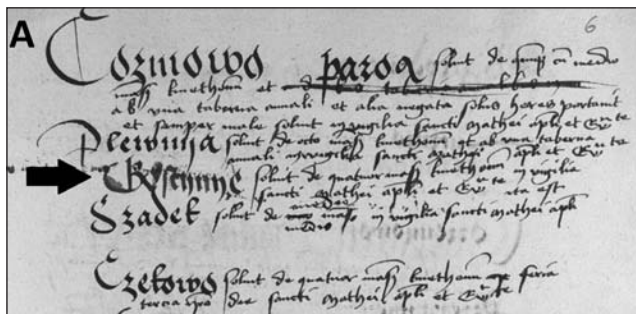 A
6
Cozmowo paroa soluit de quinqz cu medio
mass kmethonu et
ab vna taberna annali et alia negata solus heres portauit
et semper male soluit in vigilia sancti Mathei apli et
Plewnja soluit de octo mass kmethonu et ab vna taberna
annali in vigilia sancti Mathei apli et
soluit de quatuor mass kmethonu in vigilia
sancti Mathei apli et ista est
medio
Szadek soluit de maso in vigilia sancti Mathei apli
medio
Czekowo soluit de quatuor mass kmethonu feria
tercia pro die sancti Mathei apli et